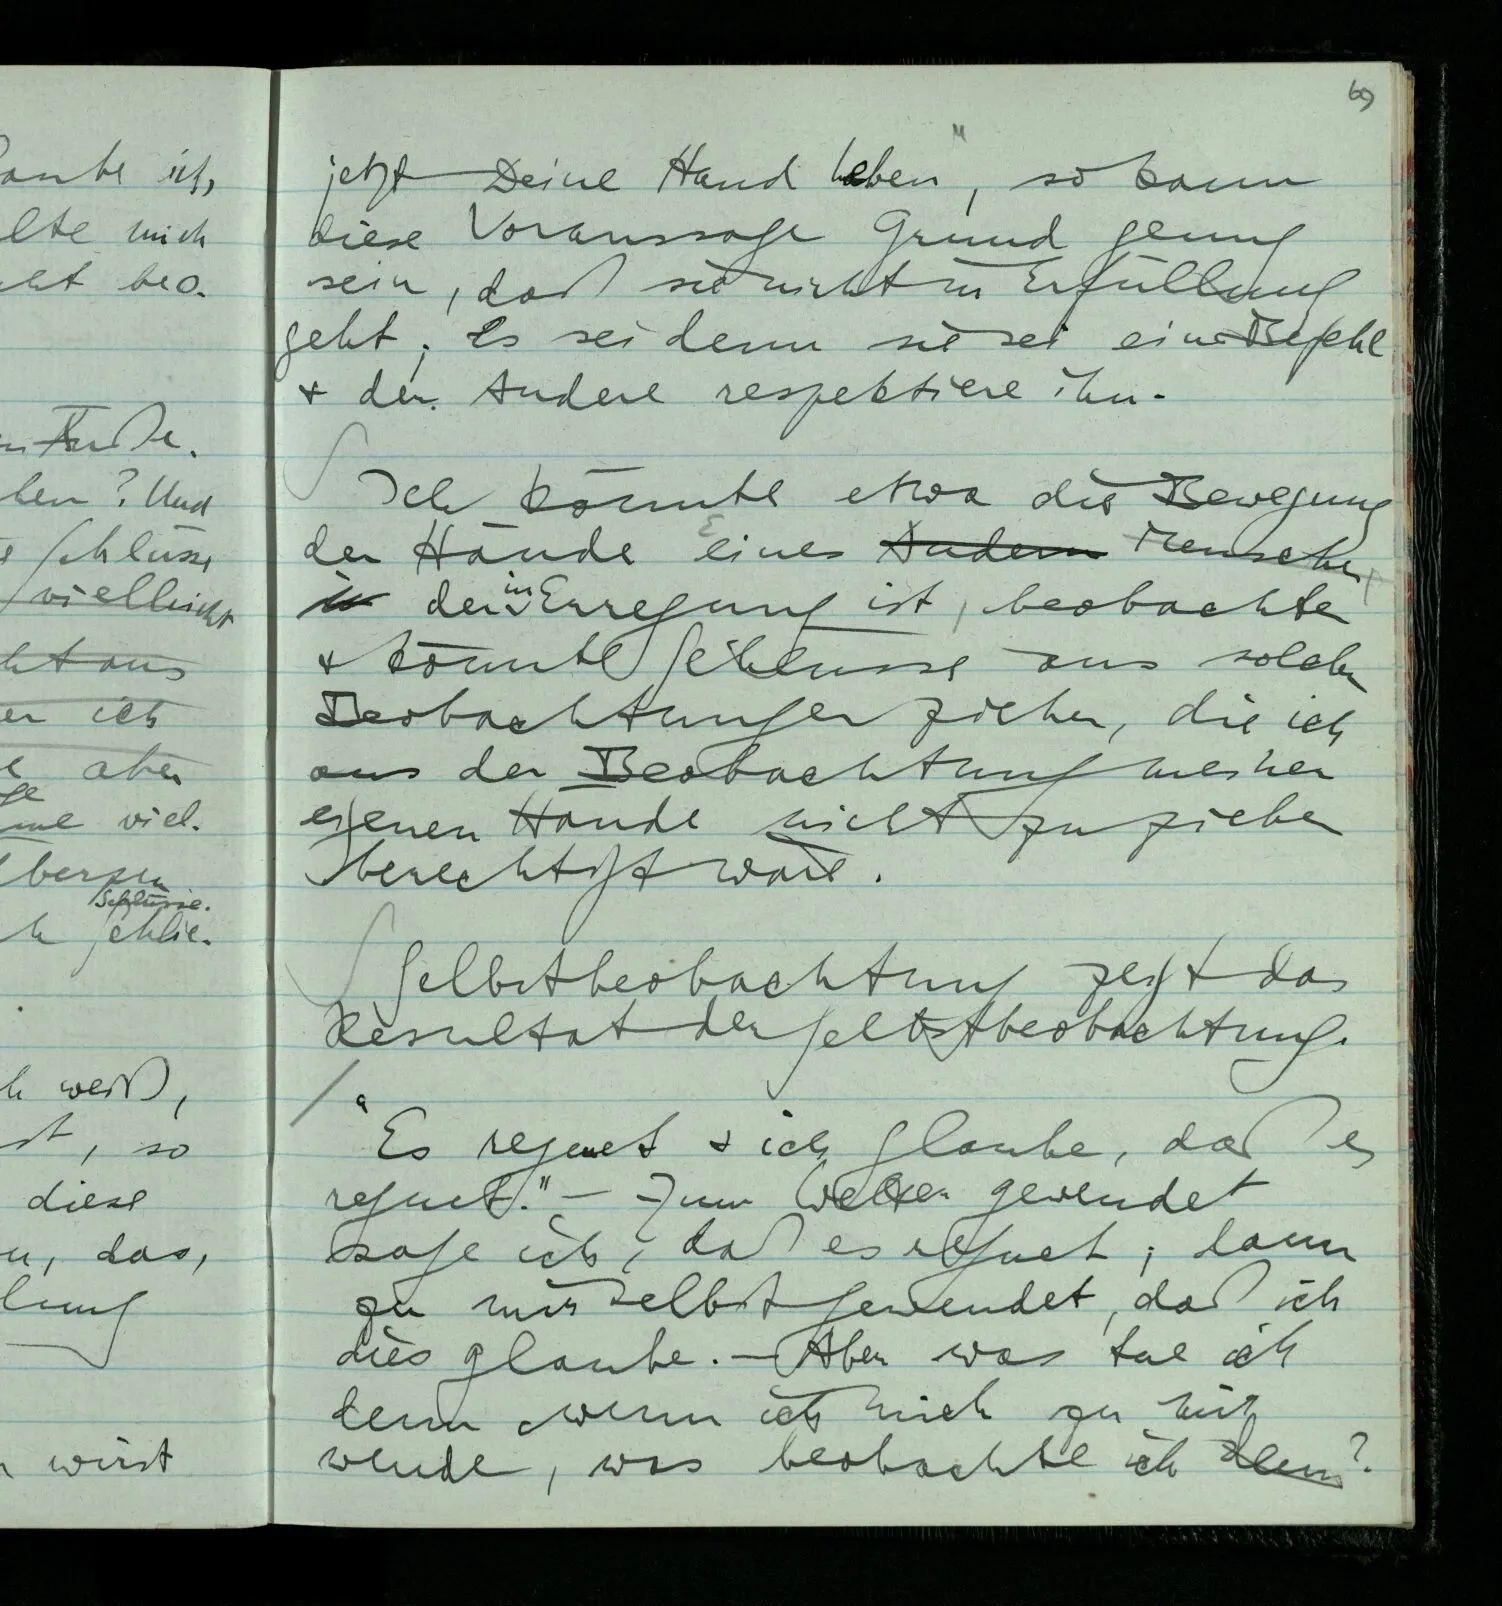 aube ich,
lte mich
cht beo-
Ende.
hen? Und
Schlüsse
vielleicht
ht aus
er ich
aber
ge
me viel-
Schlüsse.
h schlie-
h weiß,
st, so
diese
n, das,
lung
wirst
69
jetzt Deine Hand heben", so kann
diese Voraussage Grund genug
sein, daß sie nicht in Erfüllung
geht; Es sei denn sie sei ein Befehl
& der Andere respektiere ihn.
Ich könnte etwa die Bewegung
der Hände eines Andern Menschen,
in der in Erregung ist, beobachten
& könnte Schlüsse aus solchen
Beobachtungen ziehen, die ich
aus der Beobachtung meiner
eigenen Hände nicht zu ziehen
berechtigt wäre.
Selbstbeobachtung zeigt das
Resultat der Selbstbeobachtung.
"Es regnet & ich glaube, daß es
regnet." – Zum Wetter gewendet
sage ich, daß es regnet; dann
zu mir selbst gewendet, daß ich
dies glaube. – Aber was tue ich
denn wenn ich mich zu mir
wende, was beobachte ich denn?